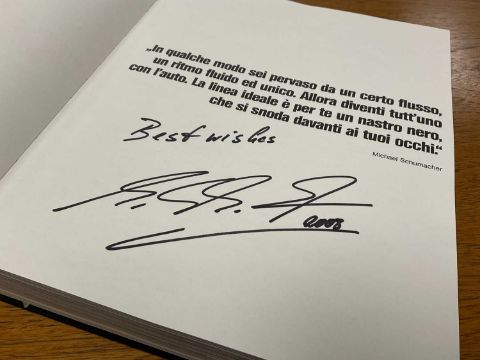 „In qualche modo sei pervaso da un certo flusso,
un ritmo fluido ed unico. Allora diventi tutt'uno
con l'auto. La linea ideale è per te un nastro nero,
che si snoda davanti ai tuoi occhi.“
Michael Schumacher
Best wishes
2003